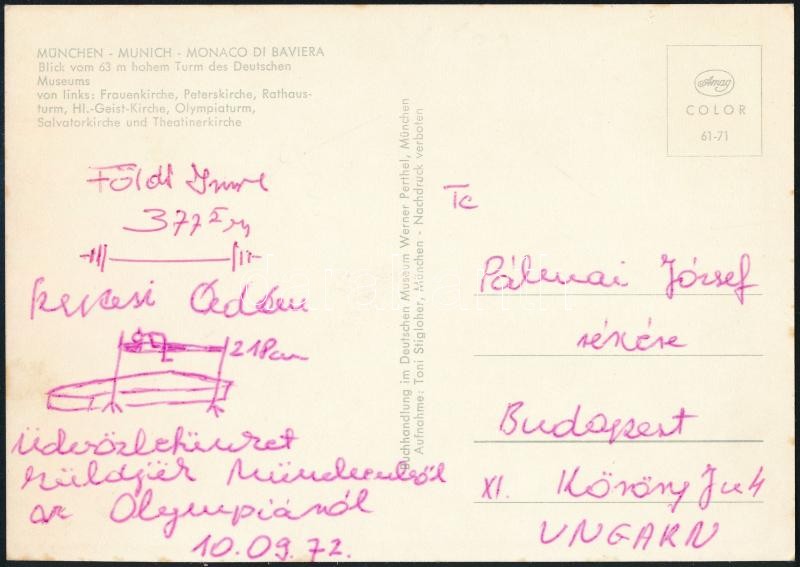 MÜNCHEN - MUNICH - MONACO DI BAVIERA
Blick vom 63 m hohem Turm des Deutschen
Museums
von links: Frauenkirche, Peterskirche, Rathaus-
turm, Hl.-Geist-Kirche, Olympiaturm,
Salvatorkirche und Theatinerkirche
Földi Imre
377
Ádám
218 cm
Üdvözletünket
küldjük Münchenből
az Olympiáról
10.09.72.
Buchhandlung im Deutschen Museum Werner Perthel, München
Aufnahme: Toni Stigloher, München - Nachdruck verboten
Amag
COLOR
61-71
Pálmai József
részére
Budapest
XI. Köröny J u 4
UNGARN